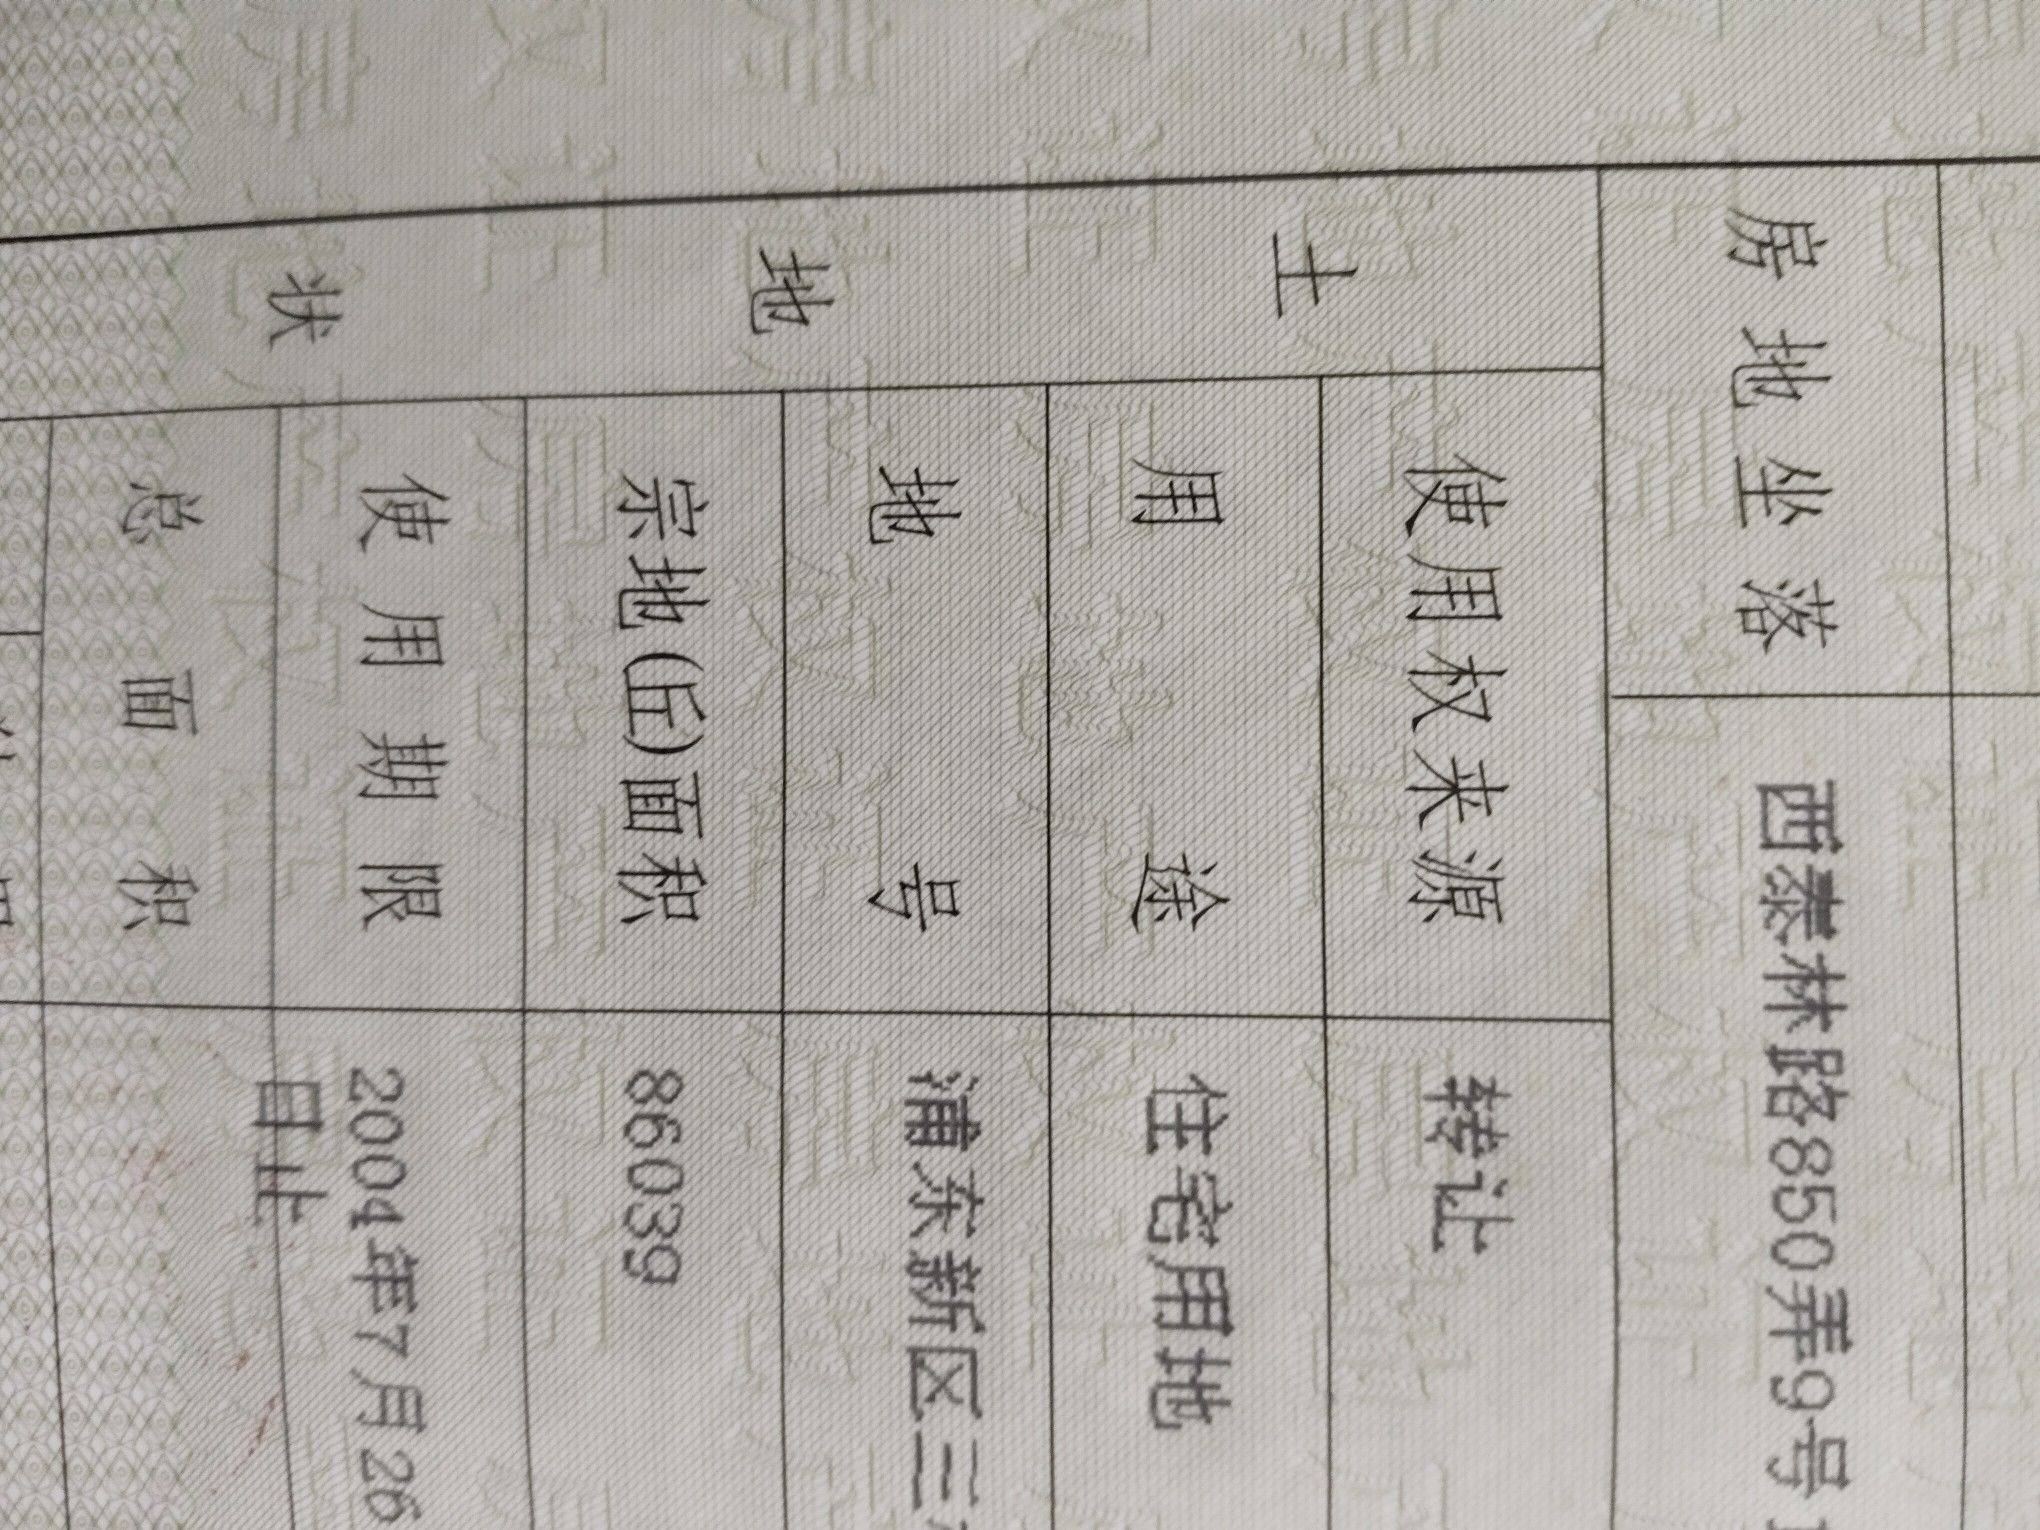 房地坐落 西泰林路850弄9号
土地状
使用权来源 转让
用途 住宅用地
地号 浦东新区三
宗地(丘)面积 86039
使用期限 2004年7月26
日止
总面积